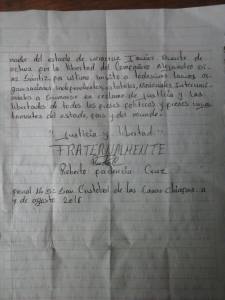 nado del estado de veracruz Ignacio Duarte de
ochua por la libertad del compañero Alejandro Di-
az Santiz. por ultimo invito a todas las or-
ganisaciones, independientes, estatales, Nacionales Internaci-
onales a enunciar en reclamo de justicia y las
libertades de todos los presos politicos y presos
del estado, pais y del mundo.
"Justicia y libertad"
FRATERNALMENTE
Roberto paciencia Cruz
penal N. 5: San Cristobal de las Casas Chiapas. a
9 de agosto 2016